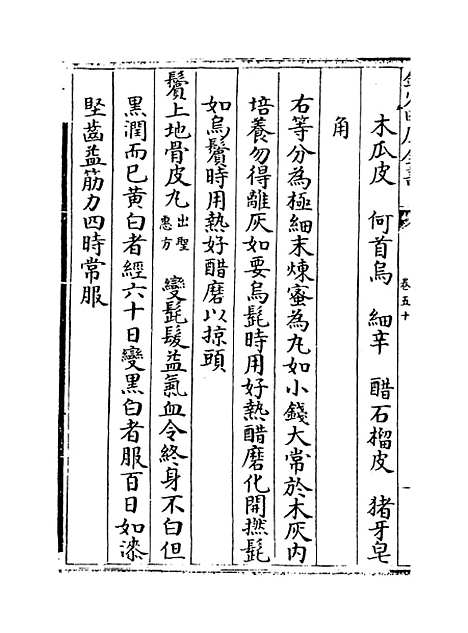 欽定四庫全書
卷五十
木瓜皮　何首烏　細辛　醋石榴皮　猪牙皂
角
右等分為極細末煉蜜為丸如小錢大常於木灰内
培養勿得離灰如要烏髭時用好熱醋磨化開撚髭
如烏鬢時用熱好醋磨以掠頭
鬢上地骨皮丸出聖惠方　變髭髮益氣血令終身不白但
黑潤而已黄白者經六十日變黑白者服百日如漆
堅齒益筋力四時常服